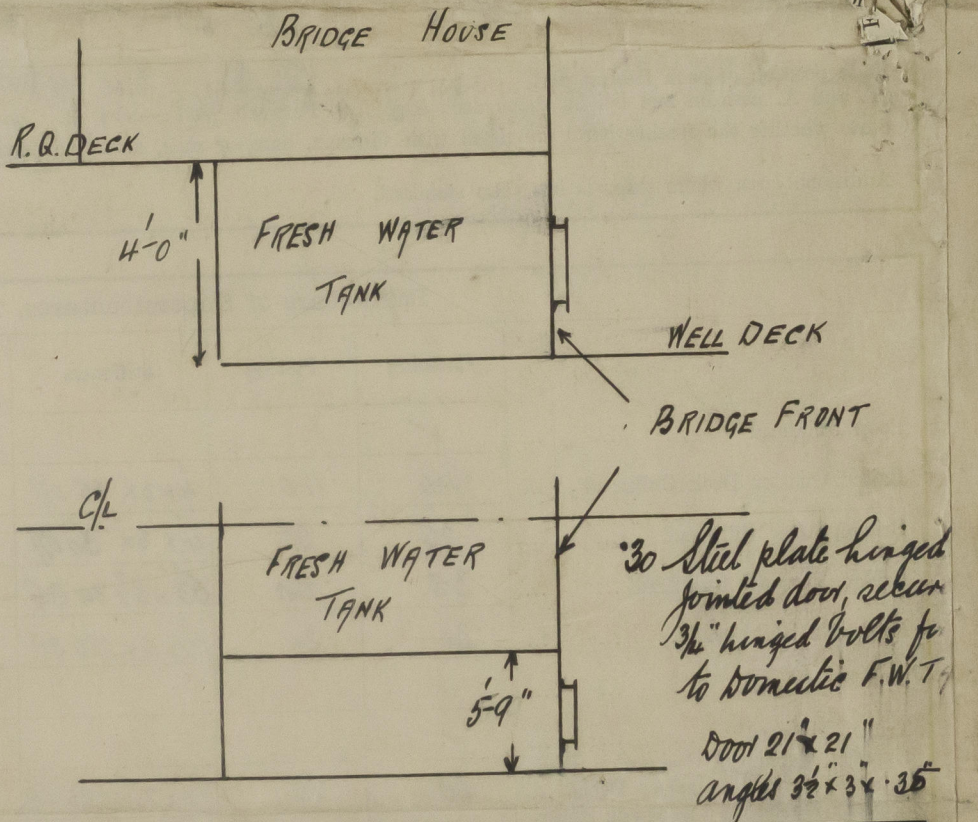 BRIDGE HOUSE
R.Q. DECK
4'-0"
FRESH WATER
TANK
WELL DECK
BRIDGE FRONT
C/L
FRESH WATER
TANK
5'-9"
·30 Steel plate hinged
jointed door, secur
3/4" hinged bolts f
to Domestic F.W.T
Door 21" x 21"
angles 3½" x 3" x ·35"